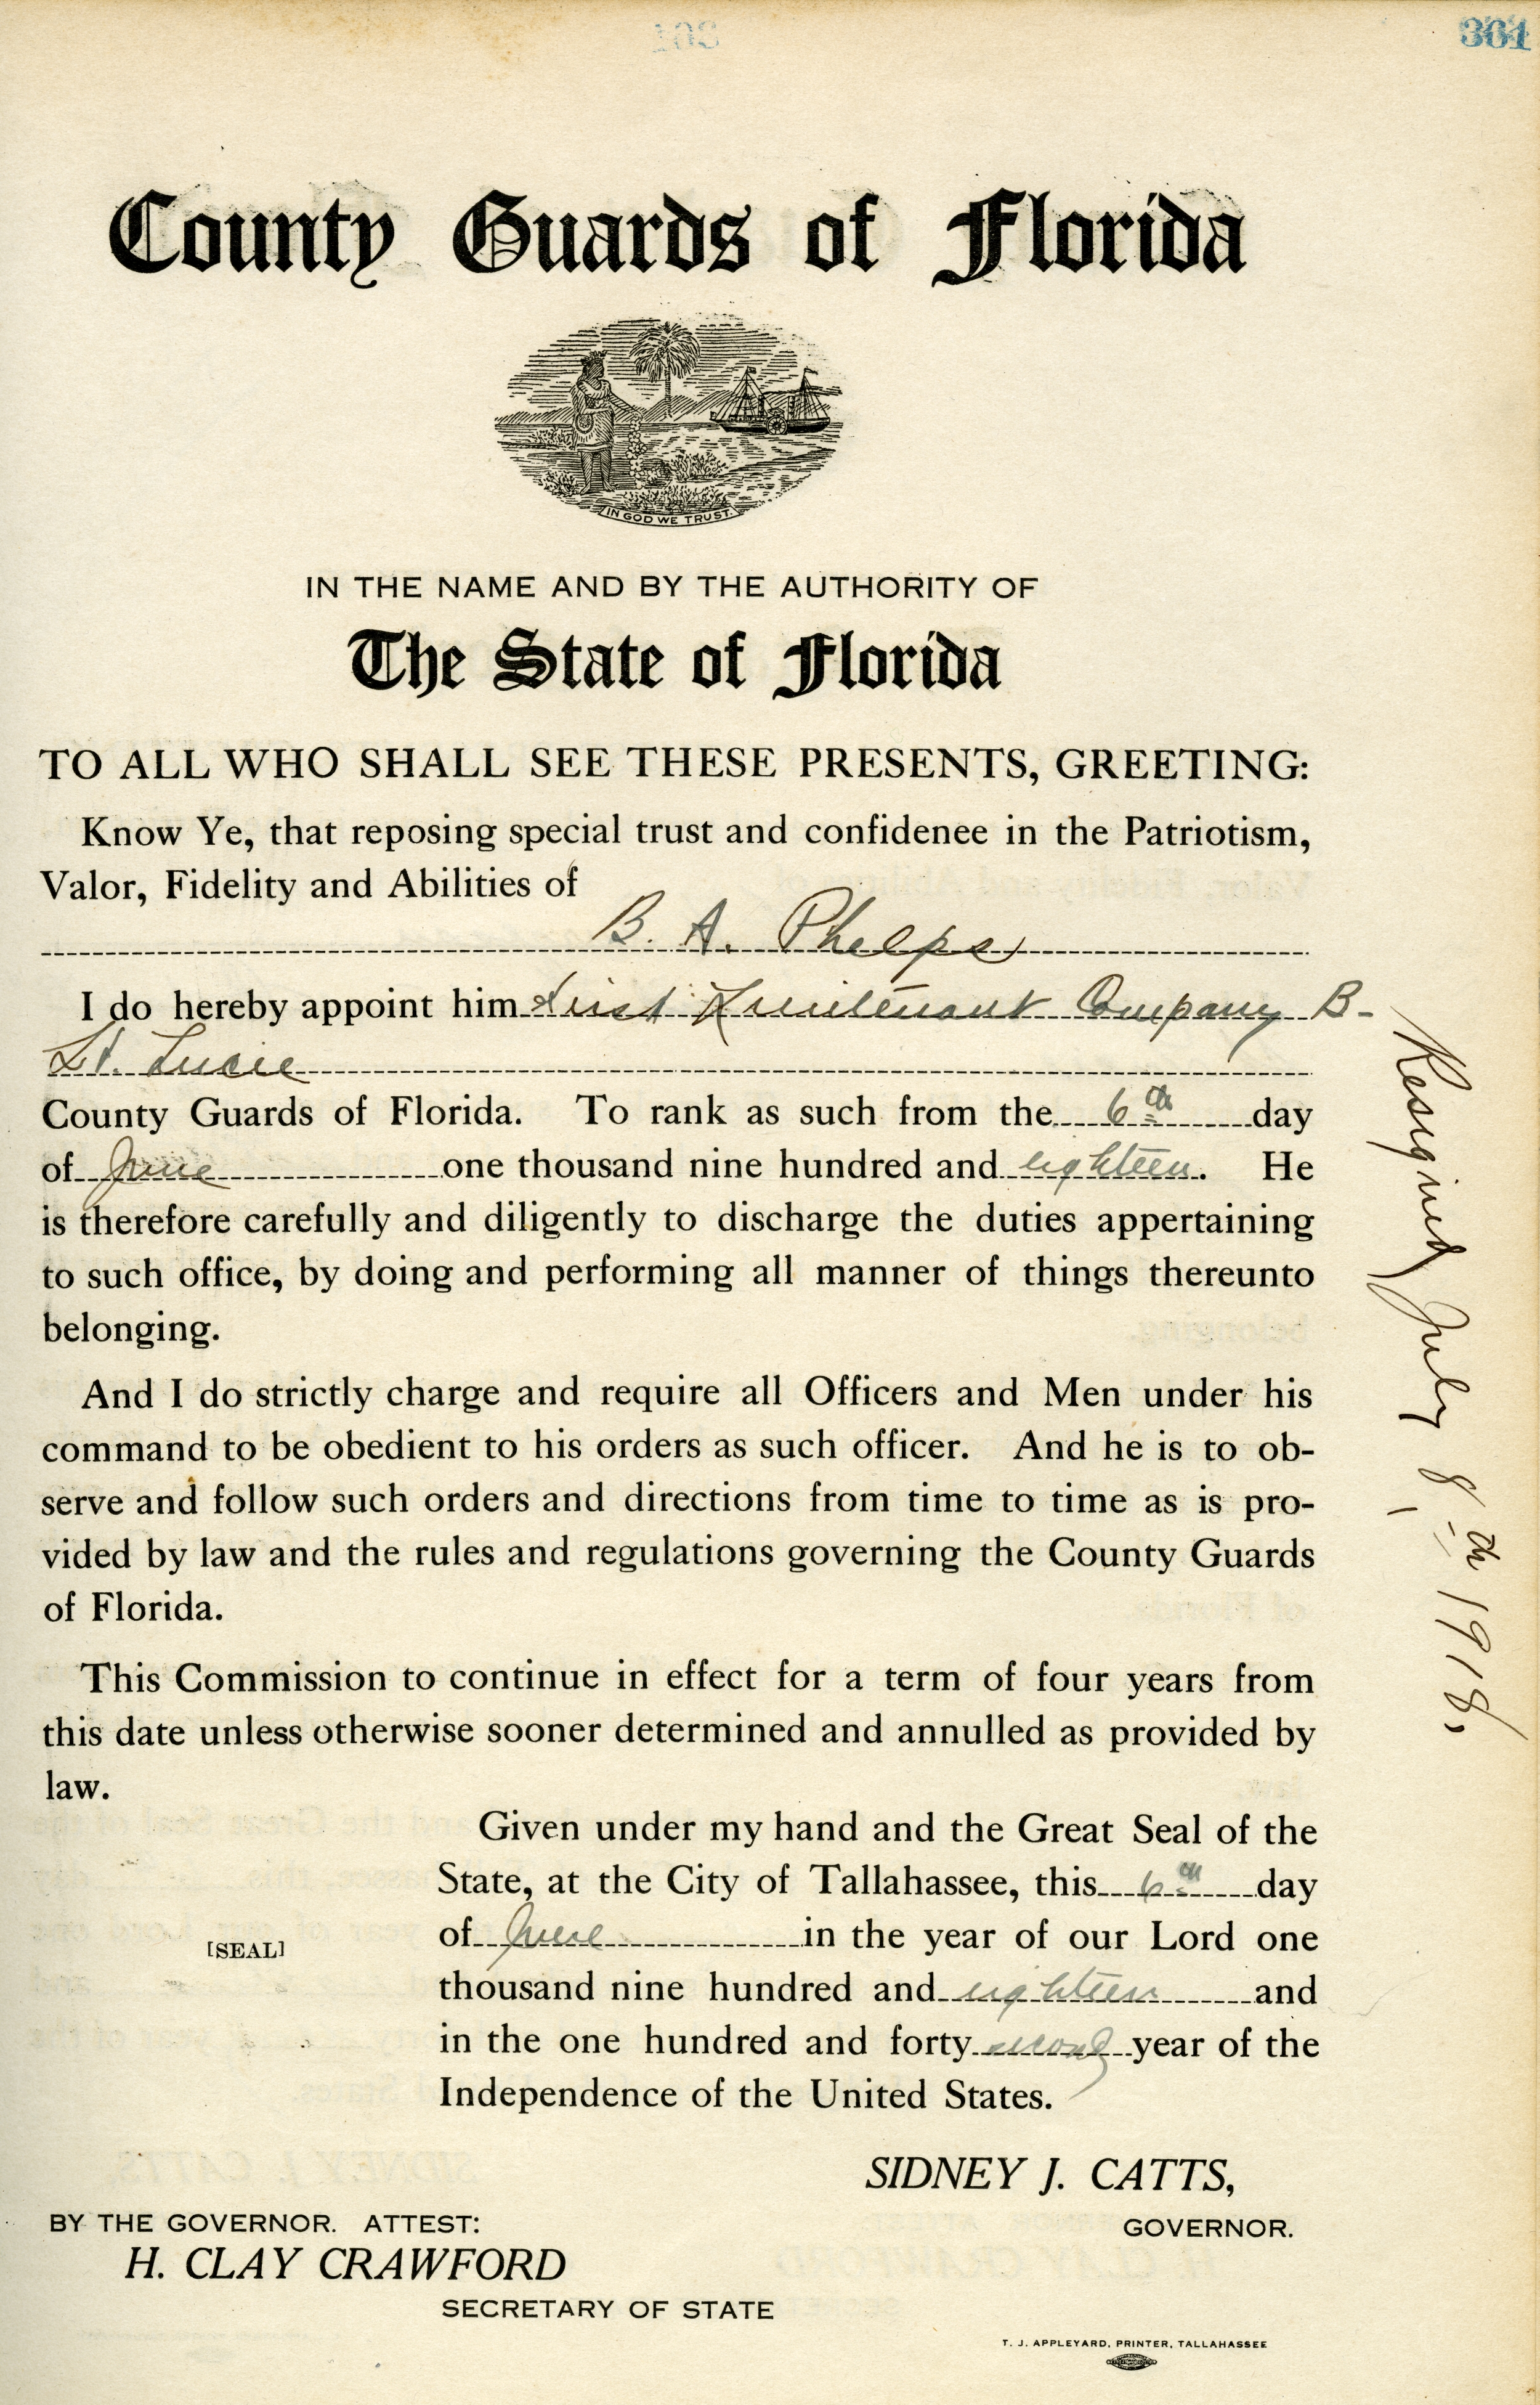 361
County Guards of Florida
IN GOD WE TRUST.
IN THE NAME AND BY THE AUTHORITY OF
The State of Florida
TO ALL WHO SHALL SEE THESE PRESENTS, GREETING:
Know Ye, that reposing special trust and confidenee in the Patriotism,
Valor, Fidelity and Abilities of
B. A. Phelps
I do hereby appoint him First Lieutenant Company B-
St. Lucie
County Guards of Florida. To rank as such from the 6th day
of June one thousand nine hundred and eighteen. He
is therefore carefully and diligently to discharge the duties appertaining
to such office, by doing and performing all manner of things thereunto
belonging.
And I do strictly charge and require all Officers and Men under his
command to be obedient to his orders as such officer. And he is to ob-
serve and follow such orders and directions from time to time as is pro-
vided by law and the rules and regulations governing the County Guards
of Florida.
This Commission to continue in effect for a term of four years from
this date unless otherwise sooner determined and annulled as provided by
law.
Given under my hand and the Great Seal of the
State, at the City of Tallahassee, this 6th day
of June in the year of our Lord one
[SEAL]
thousand nine hundred and eighteen and
in the one hundred and forty second year of the
Independence of the United States.
SIDNEY J. CATTS,
GOVERNOR.
BY THE GOVERNOR. ATTEST:
H. CLAY CRAWFORD
SECRETARY OF STATE
T. J. APPLEYARD, PRINTER, TALLAHASSEE
Resigned July 8th, 1918.